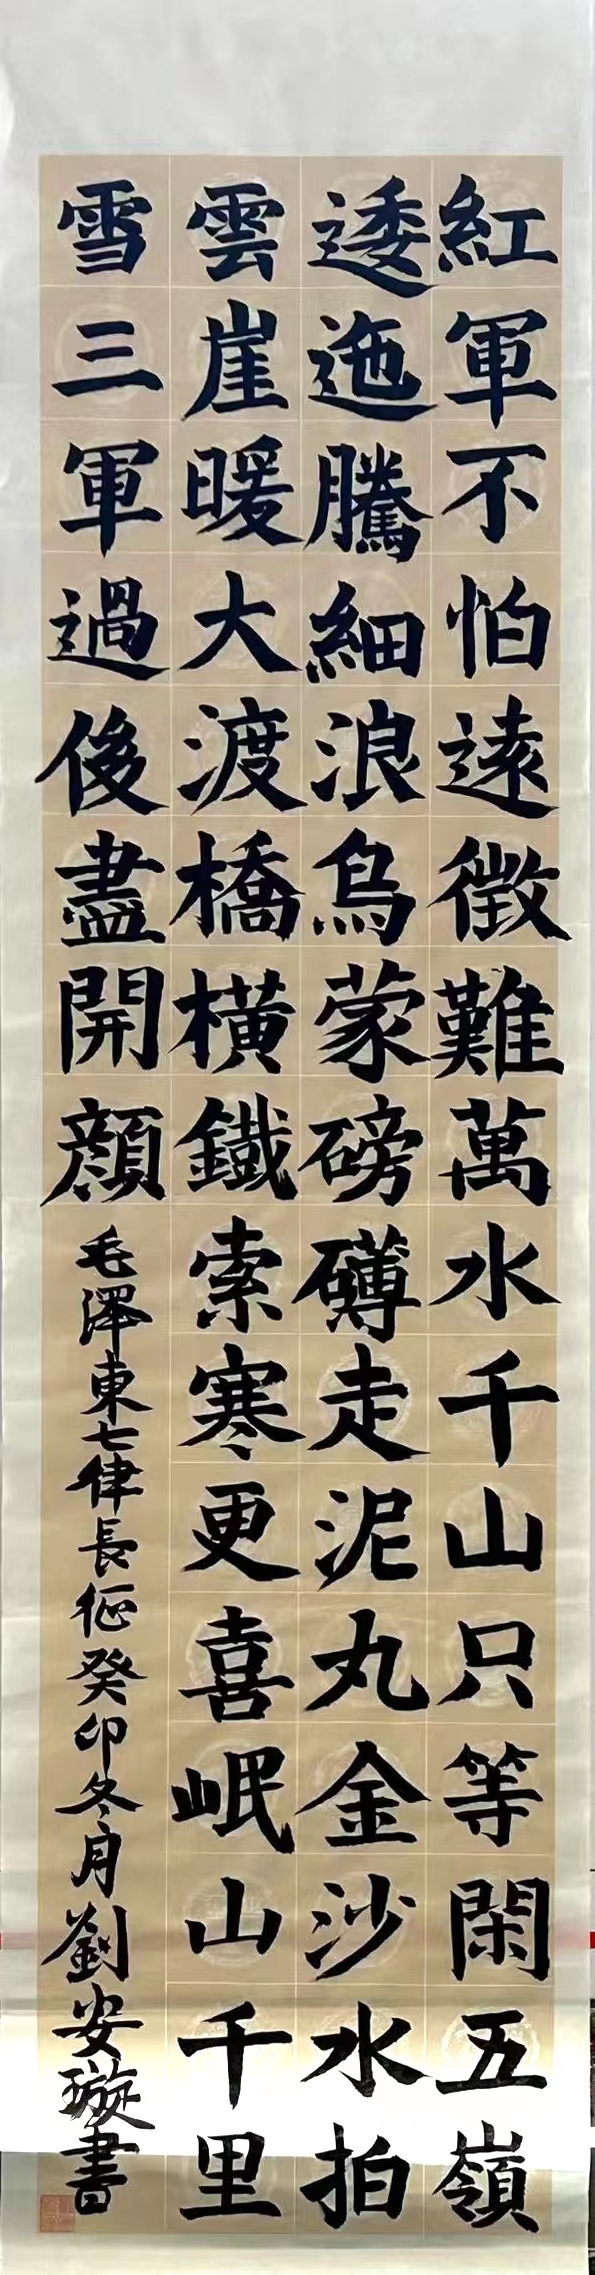 紅軍不怕遠徵難萬水千山只等閑五嶺
逶迤騰細浪烏蒙磅礴走泥丸金沙水拍
雲崖暖大渡橋橫鐵索寒更喜岷山千里
雪三軍過後盡開顔
毛澤東七律長征癸卯冬月劉安璇書